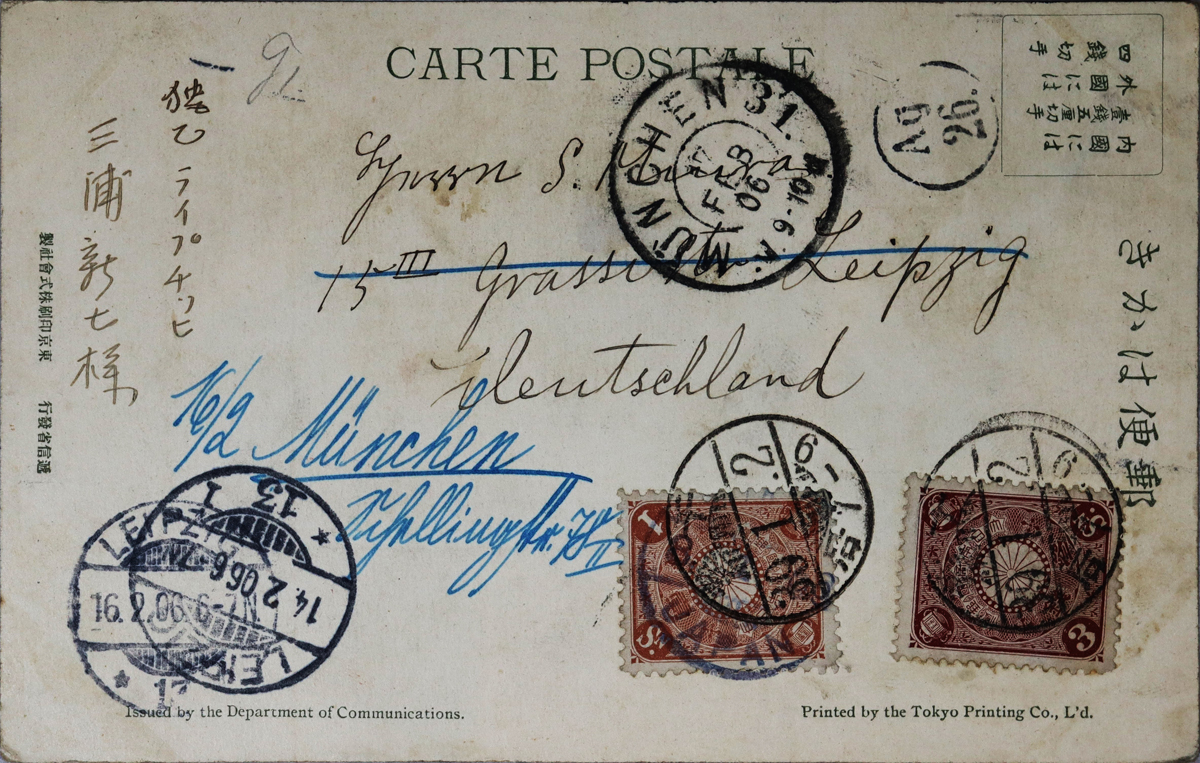 CARTE POSTALE
郵便はかき
外國には四錢切手
内國には壹錢五厘切手
Herrn S. Miura
15 III Grassistr. Leipzig
Deutschland
16/2 München
Schellingstr.
獨乙ライプチッヒ
三浦新七様
東京印刷株式會社製
遞信省發行
MÜNCHEN 31.
17
FEB
06
V. 9-10
Ag
26.
LEIPZIG
13
1
14.2.06 6
LEIPZIG
16.2.06 6-7N
13
1
S.
JAPAN
3
S.
39.1.2
Issued by the Department of Communications.
Printed by the Tokyo Printing Co., L'd.